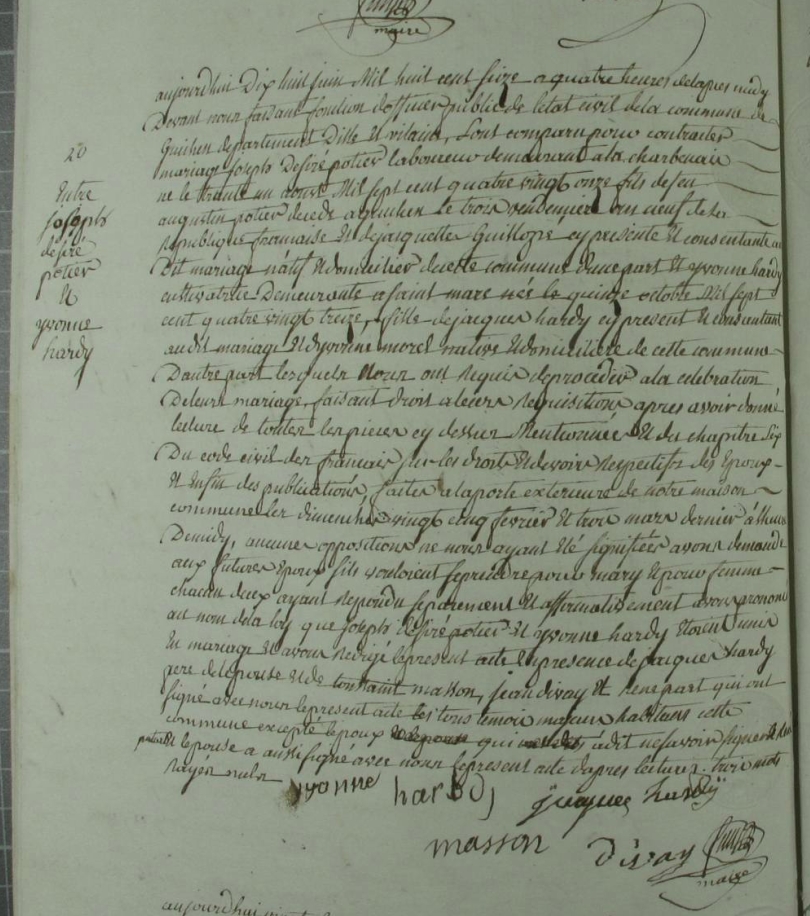 maire
20
Entre
joseph
desiré
potier
Et
yvonne
hardy
aujourdhui Dix huit juin Mil huit cent seize a quatre heures delapres midy
Devant nous faisant fonction dofficier public de letat civil dela commune de
Guichen departement Dille Et vilaine, Sont comparu pour contracter
mariage joseph Desiré potier laboureur demeurant ala charbonnaie
ne le trente un aoust Mil sept cent quatre vingt onze fils de feu
augustin potier decedé a guichen le trois vendemiere an neuf de la
Republique francaise Et dejacquette Guillope cy presente Et consentante au
Dit mariage natif Et domicilier decette commune dune part Et yvonne hardy
cultivatrice Demeurante a saint marc née le quinze octobre Mil sept
cent quatre vingt treize, fille dejacques hardy cy present Et consentant
audit mariage Et dyvonne morel native Et domiciliere de cette commune
Dautre part lesquels Nous ont Requis deproceder ala celebration
Deleur mariage, faisant droit aleurs Requisitions apres avoir donné
lecture de toutes les pieces cy dessus Mentionnées Et du chapitre Six
Du code civil des francais sur les droits Et devoirs Respectifs des Epoux
Et Enfin des publications faites ala porte exterieure de notre maison
commune les dimenches vingt cinq fevrier Et trois mars dernier à lheure
Demidy, aucunes oppositions ne nous ayant Eté signifiées avons demandé
aux futures Epoux sils vouloient seprendre pour mary Et pour femme
chacun deux ayant Repondu separement Et affirmativement avons prononcé
au nom dela loy que joseph desiré potier Et yvonne hardy Etoient unis
En mariage Et avons Redigé lepresent acte En presence de jacques hardy
pere de lepouse Et de toussaint masson, jean divay Et René part qui ont
signé avec nous lepresent acte les tous temoin majeurs habitans cette
commune excepté lepoux qui a dit nesavoir signer
Et lepouse a aussi signé avec nous lepresent acte dapres lecture. trois mots
Rayés nuls
yvonne hardy jacques hardÿ
masson divay
maire
aujourdhui